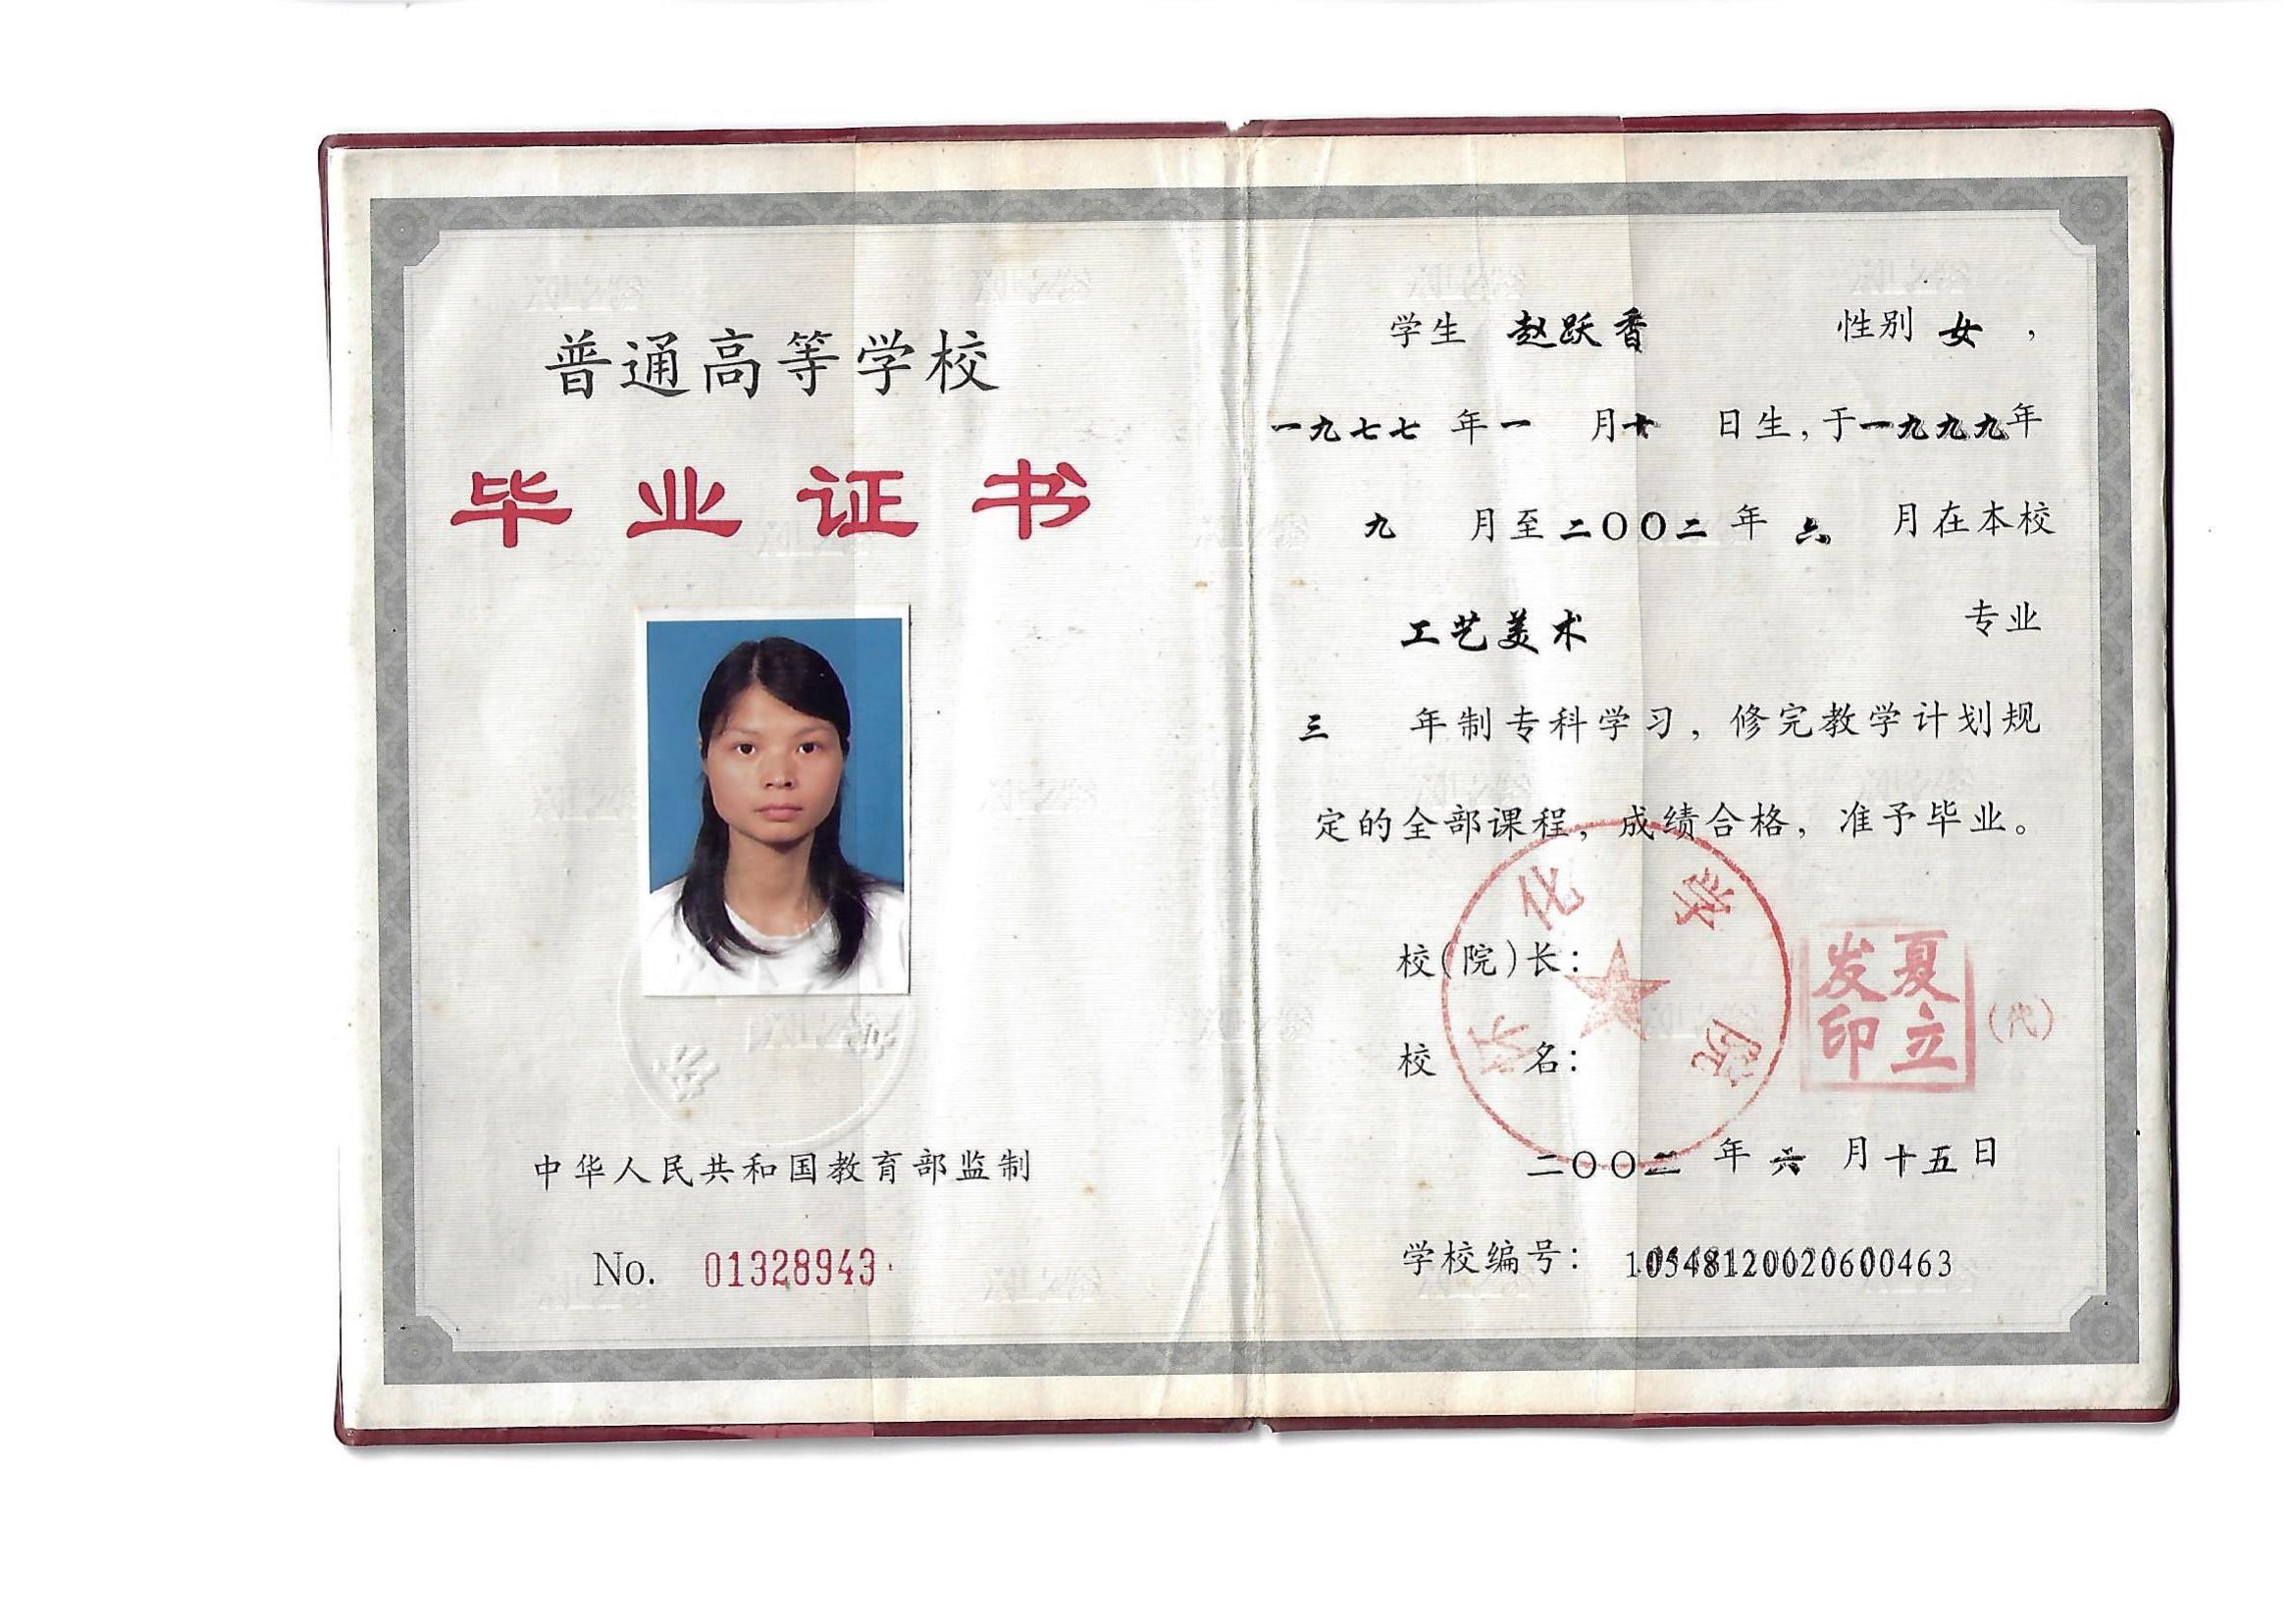 普通高等学校
毕业证书
中华人民共和国教育部监制
No. 01328943
学生 赵跃香 性别 女，
一九七七 年 一 月 十 日生，于一九九九年
九 月至二〇〇二 年 六 月在本校
工艺美术 专业
三 年制专科学习，修完教学计划规
定的全部课程，成绩合格，准予毕业。
怀化学院
校(院)长：
夏立发印
(代)
校 名：
二〇〇二 年 六 月十五日
学校编号： 10548120020600463